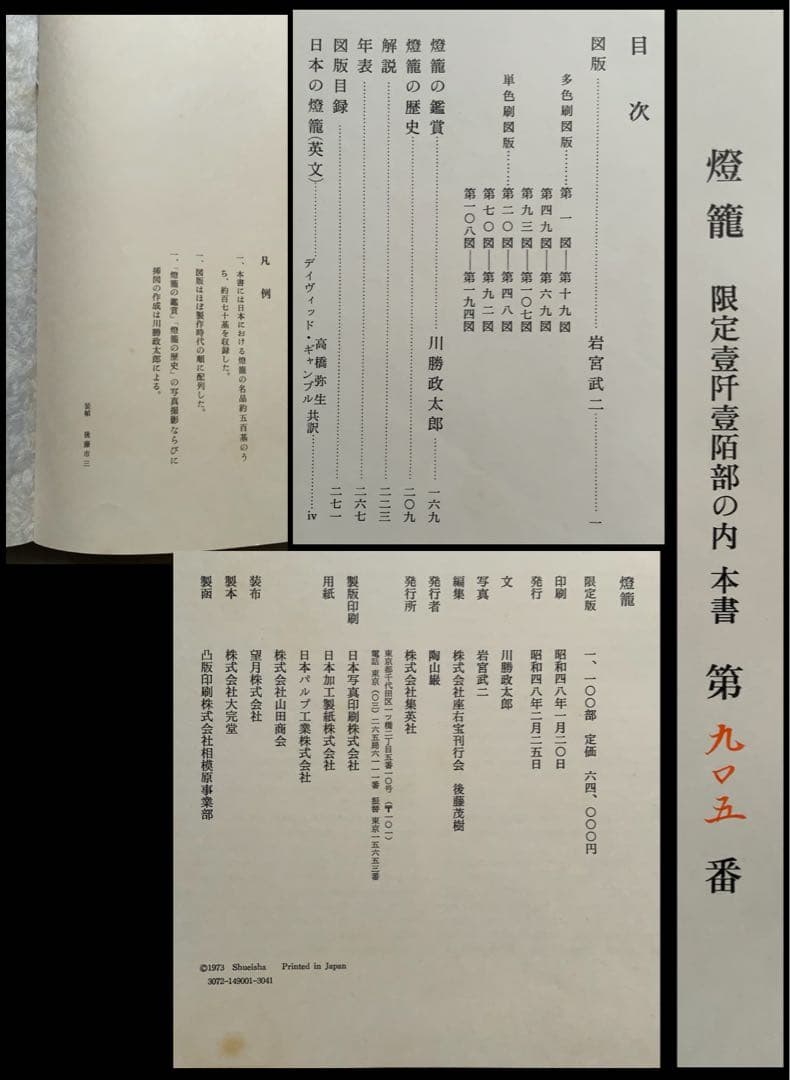 燈籠 限定壹阡壹陌部の内 本書 第九〇五番
目次
図版 岩宮武二 一
多色刷図版 第一図―第十九図
第四九図―第六九図
第九三図―第一〇七図
単色刷図版 第二〇図―第四八図
第七〇図―第九二図
第一〇八図―第一九四図
燈籠の鑑賞 川勝政太郎 一六九
燈籠の歴史 二〇九
解説 二二三
年表 二六七
図版目録 二七一
日本の燈籠(英文) デイヴィッド・ギャンブル 高橋弥生 共訳 iv
凡例
一、本書には日本における燈籠の名品約五百基のう
ち、約百七十基を収録した。
一、図版はほぼ製作時代の順に配列した。
一、「燈籠の鑑賞」「燈籠の歴史」の写真撮影ならびに
挿図の作成は川勝政太郎による。
装幀 後藤市三
燈籠
限定版 一、一〇〇部 定価 六四、〇〇〇円
印刷 昭和四八年一月二〇日
発行 昭和四八年二月二五日
文 川勝政太郎
写真 岩宮武二
編集 株式会社座右宝刊行会 後藤茂樹
発行者 陶山巌
発行所 株式会社集英社
東京都千代田区一ツ橋二丁目五番一〇号 (〒一〇一)
電話 東京(〇三)二六五局六一一一番 振替 東京一五六五三番
製版印刷 日本写真印刷株式会社
用紙 日本加工製紙株式会社
日本パルプ工業株式会社
株式会社山田商会
装布 望月株式会社
製本 株式会社大完堂
製函 凸版印刷株式会社相模原事業部
©1973 Shueisha Printed in Japan
3072-149001-3041